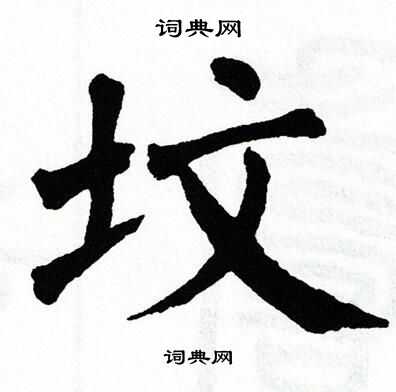 词典网
坟
词典网